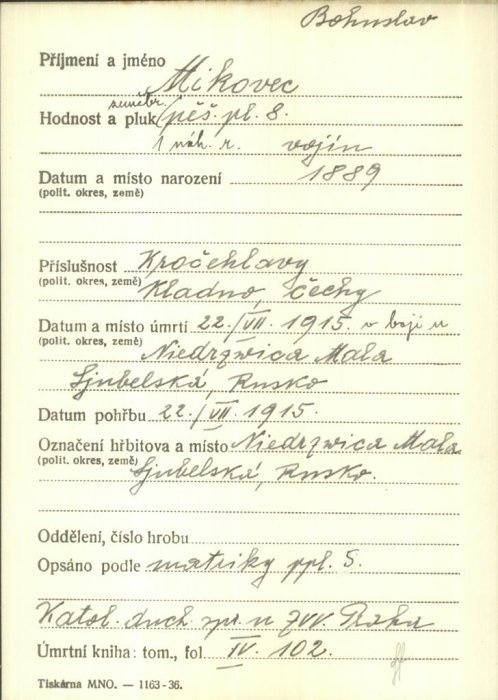 Bohuslav
Příjmení a jméno Mikovec
zeměbr.
Hodnost a pluk pěš. pl. 8.
1 náh. r. vojín
Datum a místo narození 1889
(polit. okres, země)
Příslušnost Kročehlavy
(polit. okres, země) Kladno, čechy
Datum a místo úmrtí 22./VII. 1915. v boji u
(polit. okres, země) Niedrzwica Mala
Ljubelská, Rusko
Datum pohřbu 22./VII. 1915.
Označení hřbitova a místo Niedrzwica Mala
(polit. okres, země) Ljubelská, Rusko.
Oddělení, číslo hrobu
Opsáno podle matriky ppl. 5.
Katol. duch. spr. u ZVV. Praha
Úmrtní kniha: tom., fol. IV. 102.
Tiskárna MNO. — 1163-36.